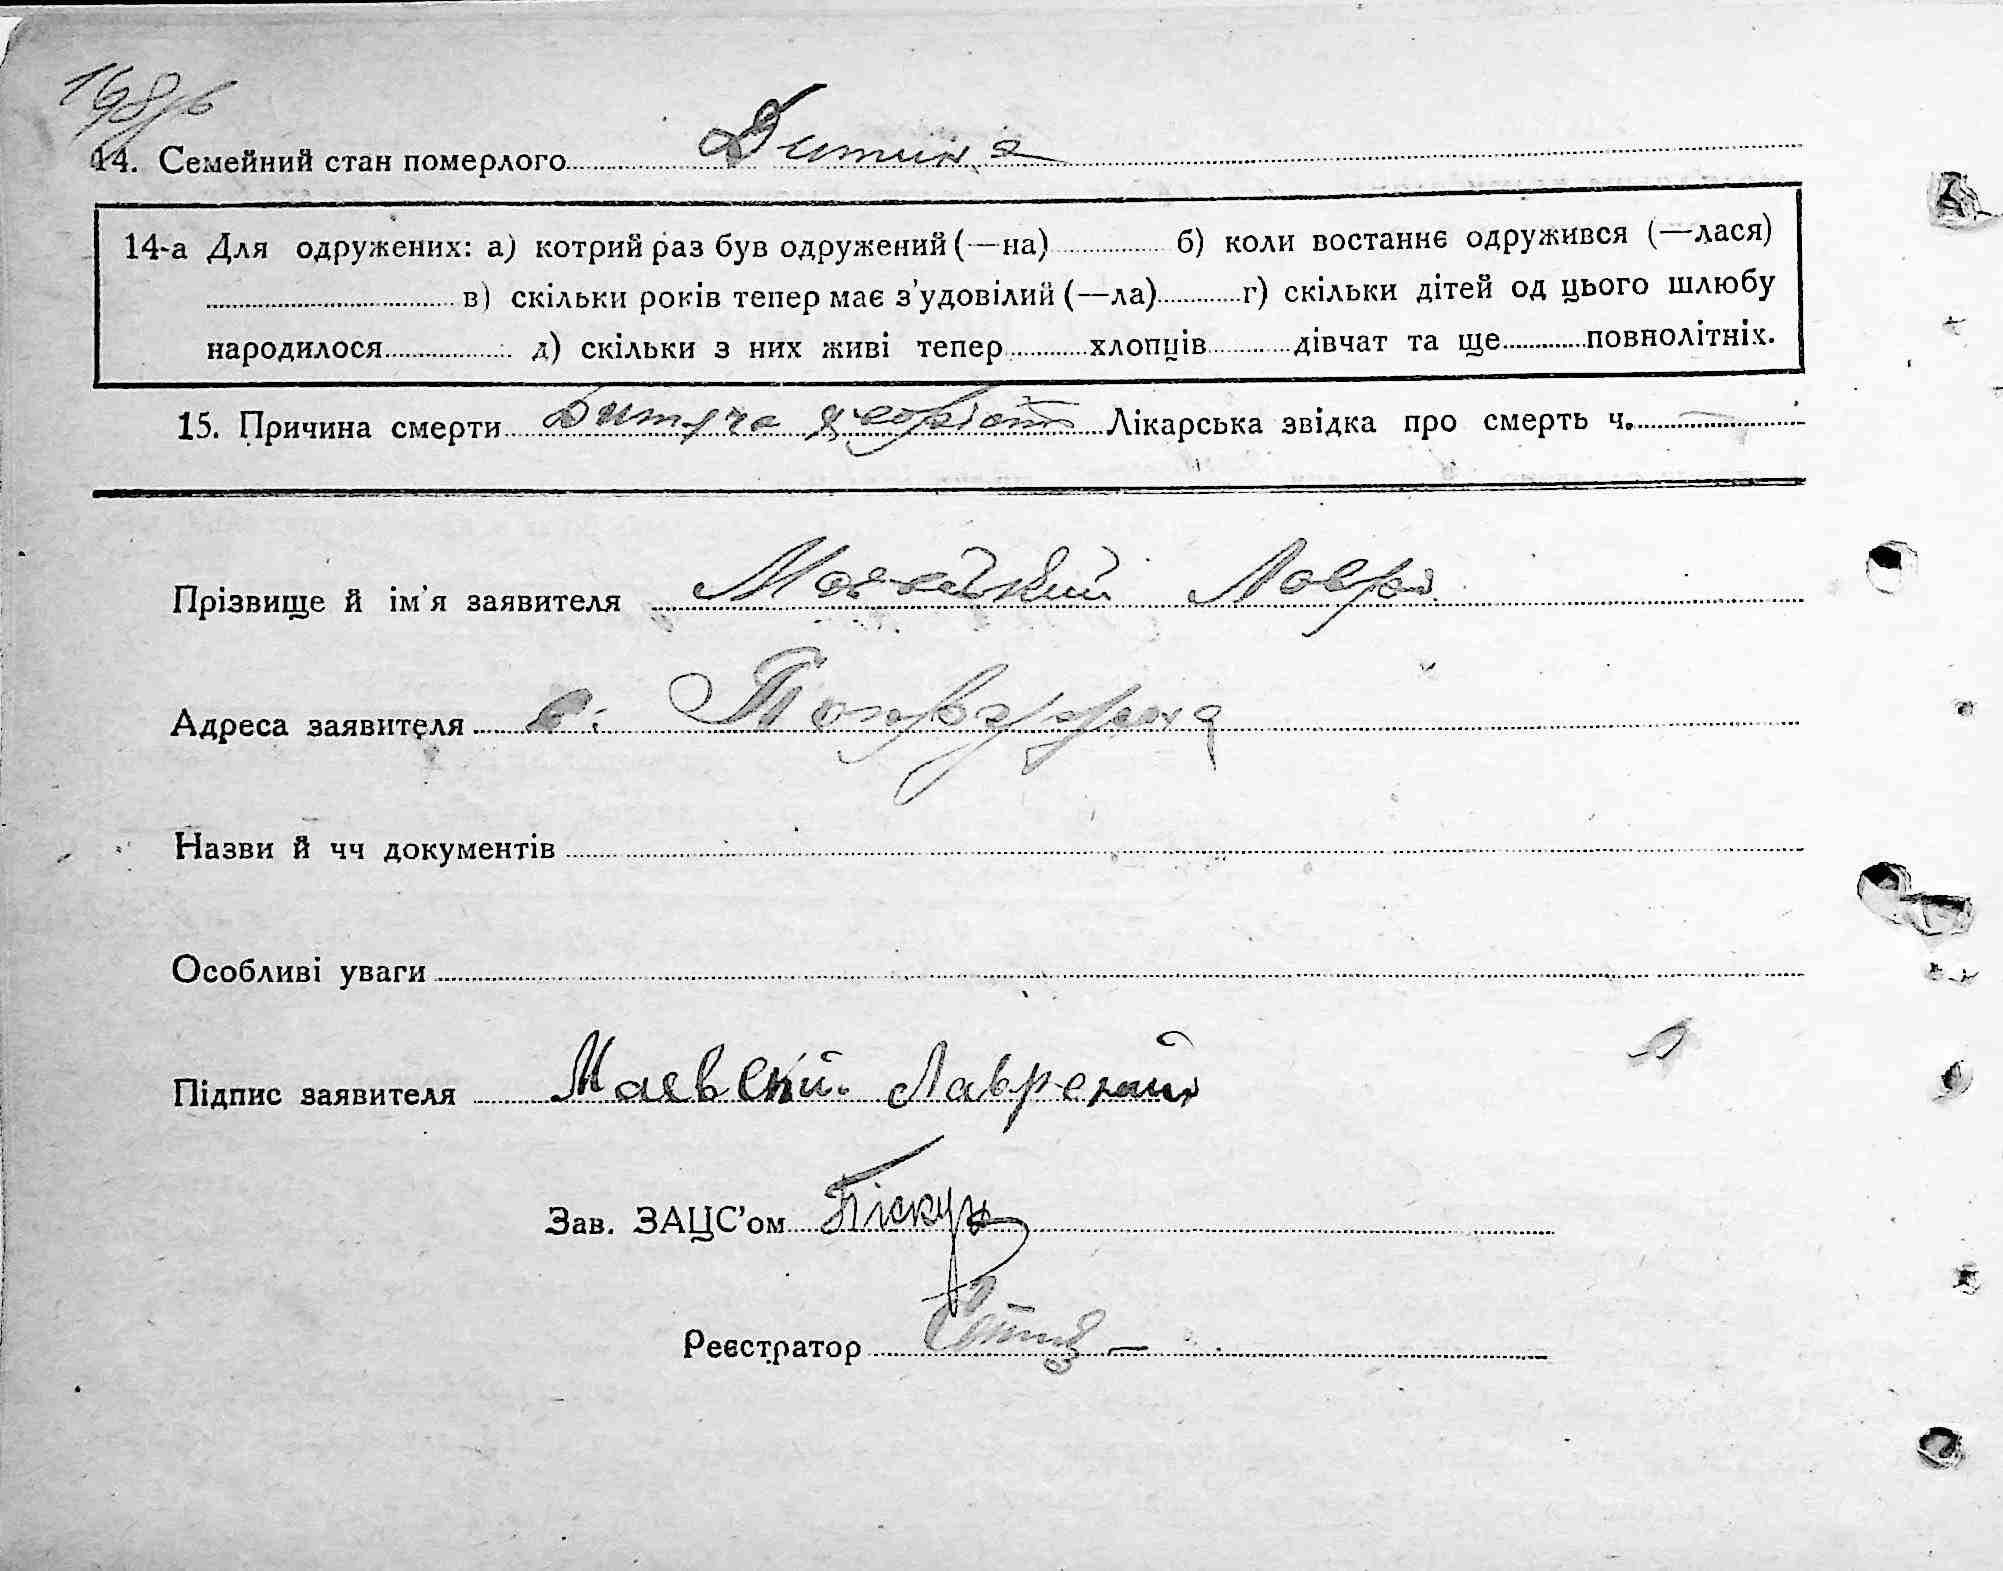 14. Семейний стан померлого Дитина
14-а Для одружених: а) котрий раз був одружений (—на) б) коли востаннє одружився (—лася)
в) скільки років тепер має з'удовілий (—ла) г) скільки дітей од цього шлюбу
народилося д) скільки з них живі тепер хлопців дівчат та ще повнолітніх.
15. Причина смерти Дитяча Лікарська звідка про смерть ч.
Прізвище й ім'я заявителя
Адреса заявителя с.
Назви й чч документів
Особливі уваги
Підпис заявителя Маевский
Зав. ЗАЦС'ом Піскун
Реєстратор